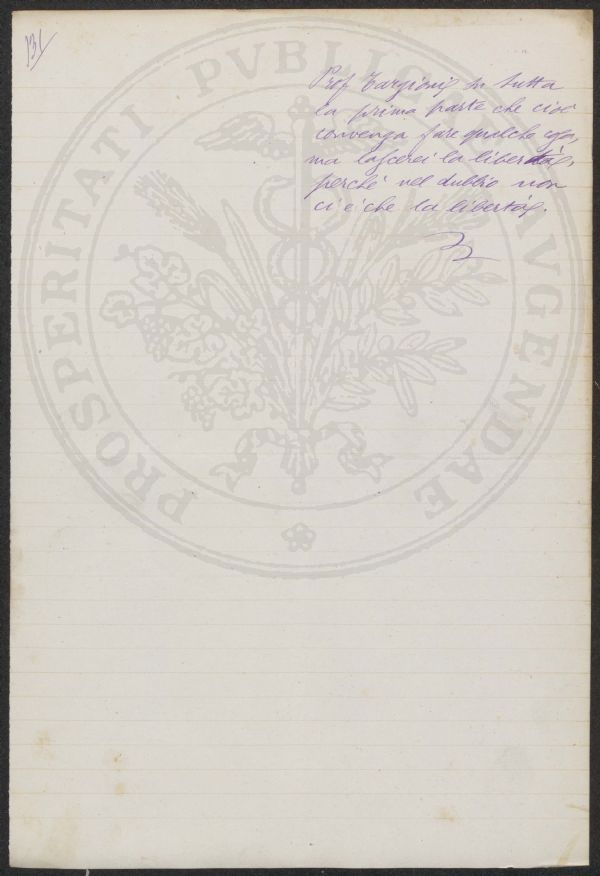 131
Prof Targioni In tutta
la prima parte che cioè
convenga fare qualche cosa,
ma lascerei la libertà,
perchè nel dubbio non
ci è che la libertà.
PROSPERITATI PVBLICAE AVGENDAE